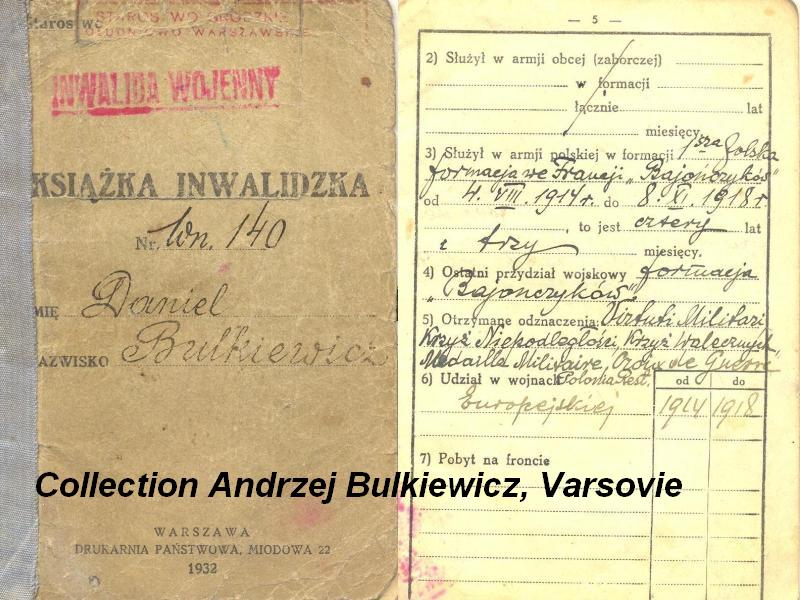 Staros wo
STAROS WO GRODZKIE
INWALIDA WOJENNY
KSIĄŻKA INWALIDZKA
Nr. Wn. 140
MIĘ Daniel
AZWISKO Bulkiewicz
WARSZAWA
DRUKARNIA PAŃSTWOWA, MIODOWA 22
1932
— 5 —
2) Służył w armji obcej (zaborczej)
w formacji
łącznie lat
miesięcy.
3) Służył w armji polskiej w formacji 1sza Polska
formacja we Francji „Bajończyków”
od 4. VIII. 1914 r. do 8. XI. 1918 r
, to jest cztery lat
i trzy miesięcy.
4) Ostatni przydział wojskowy formacja
„Bajończyków”
5) Otrzymane odznaczenia: Virtuti Militari
Krzyż Niepodległości, Krzyż Walecznych
Medaille Militaire, Croix de Guerre
6) Udział w wojnach Polonia Rest. od do
Europejskiej 1914 1918
7) Pobyt na froncie
Collection Andrzej Bulkiewicz, Varsovie